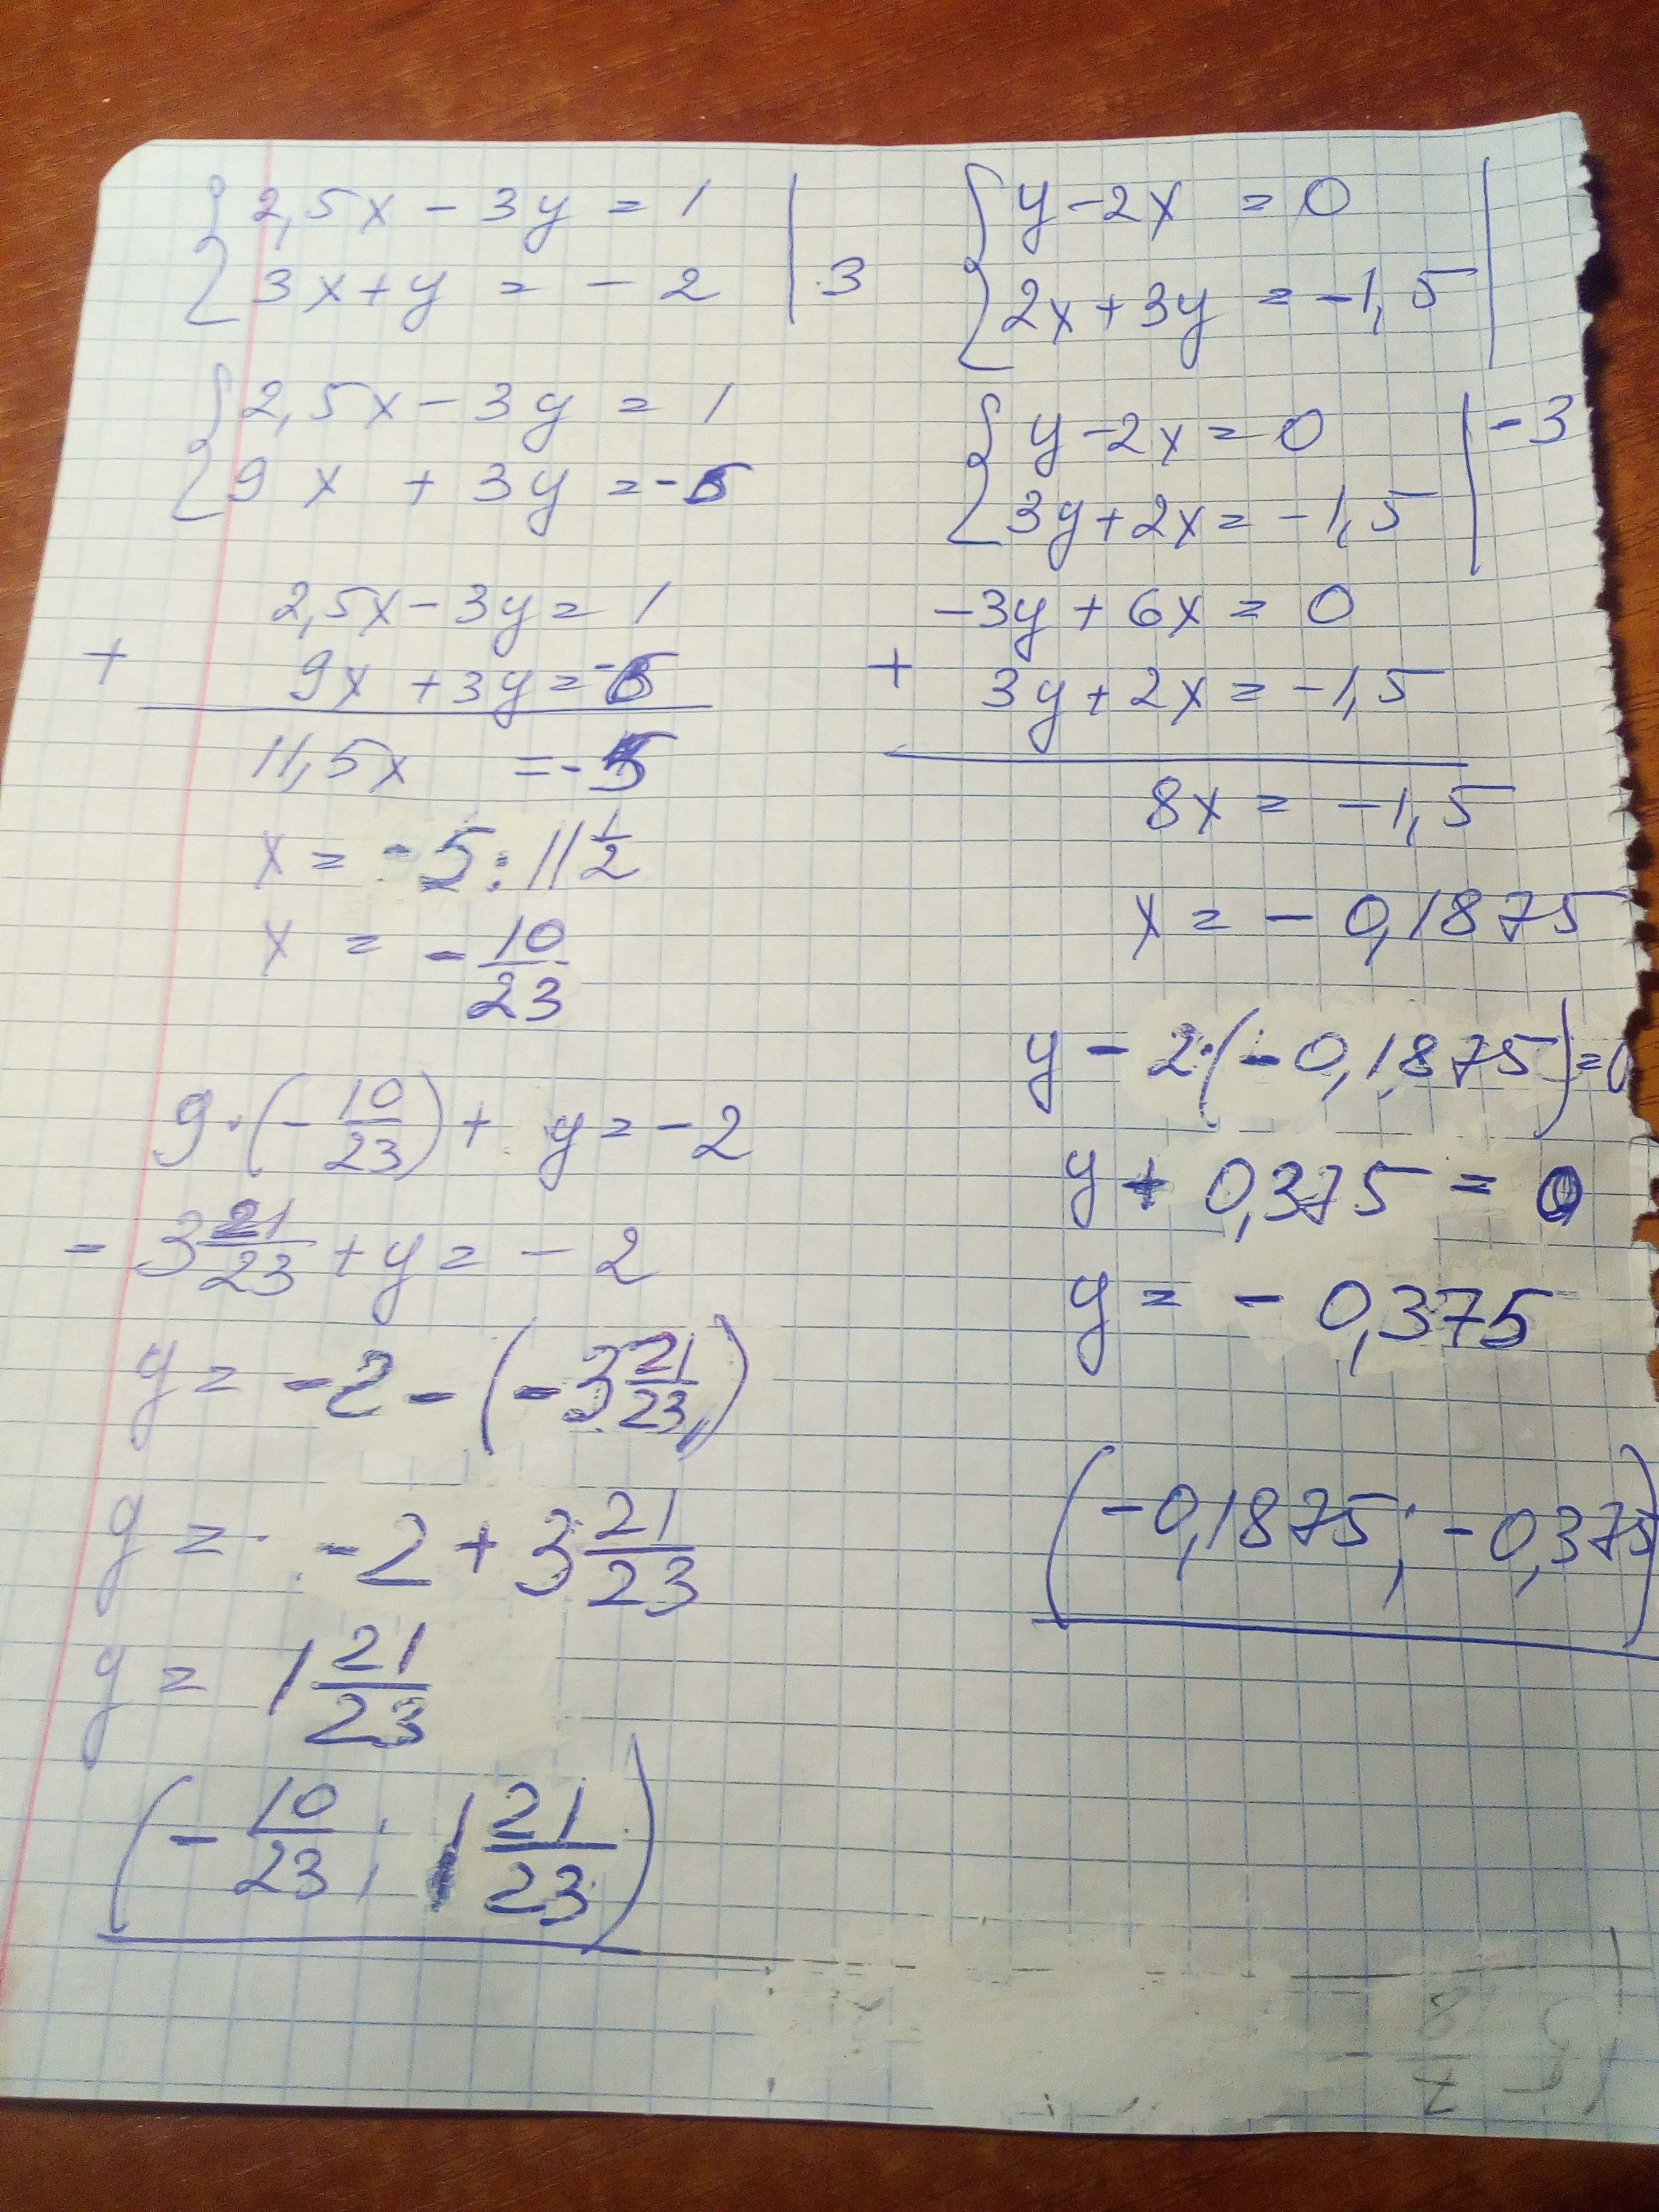 { 2,5x - 3y = 1
{ 3x + y = - 2 | ·3
{ 2,5x - 3y = 1
{ 9x + 3y = -6
2,5x - 3y = 1
+ 9x + 3y = -6
11,5x = -5
x = -5 : 11 1/2
x = - 10/23
9 · (- 10/23) + y = -2
- 3 21/23 + y = - 2
y = -2 - (-3 21/23)
y = -2 + 3 21/23
y = 1 21/23
(- 10/23 ; 1 21/23)
{ y - 2x = 0
{ 2x + 3y = -1,5 |
{ y - 2x = 0 | -3
{ 3y + 2x = -1,5
-3y + 6x = 0
+ 3y + 2x = -1,5
8x = -1,5
x = - 0,1875
y - 2·(-0,1875) = 0
y + 0,375 = 0
y = - 0,375
(-0,1875; -0,375)